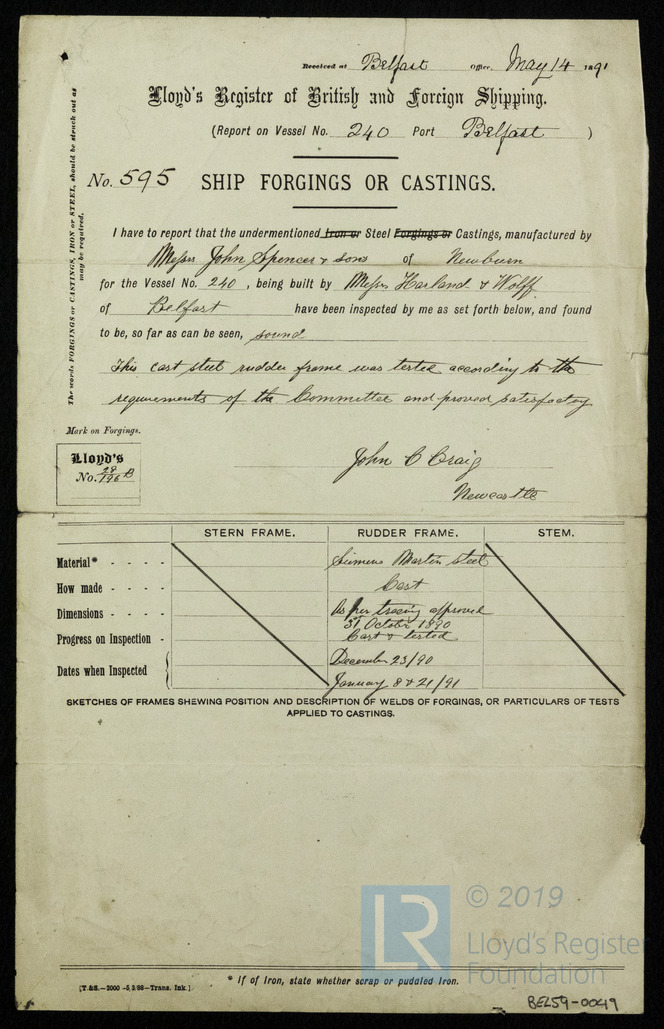 Received at Belfast Office, May 14 1891
Lloyd's Register of British and Foreign Shipping.
(Report on Vessel No. 240 Port Belfast )
No. 595 SHIP FORGINGS OR CASTINGS.
The words FORGINGS or CASTINGS, IRON or STEEL, should be struck out as may be required.
I have to report that the undermentioned Iron or Steel Forgings or Castings, manufactured by
Messrs John Spencer & sons of Newburn
for the Vessel No. 240 , being built by Messrs Harland & Wolff
of Belfast have been inspected by me as set forth below, and found
to be, so far as can be seen, sound
This cast steel rudder frame was tested according to the
requirements of the Committee and proved satisfactory
Mark on Forgings.
Lloyd's
No.
John C Craig
Newcastle
STERN FRAME. RUDDER FRAME. STEM.
Material* - - - - Siemens Martin steel
How made - - - - Cast
Dimensions - - - - As per tracing approved
31 October 1890
Progress on Inspection - Cast & tested
Dates when Inspected December 23/90
January 8 & 21/91
SKETCHES OF FRAMES SHEWING POSITION AND DESCRIPTION OF WELDS OF FORGINGS, OR PARTICULARS OF TESTS
APPLIED TO CASTINGS.
© 2019
LR Lloyd's Register
Foundation
* If of Iron, state whether scrap or pudaled Iron.
[T.&S.—2000 -5,3/88—Trans. Ink.]
BEL59-0049